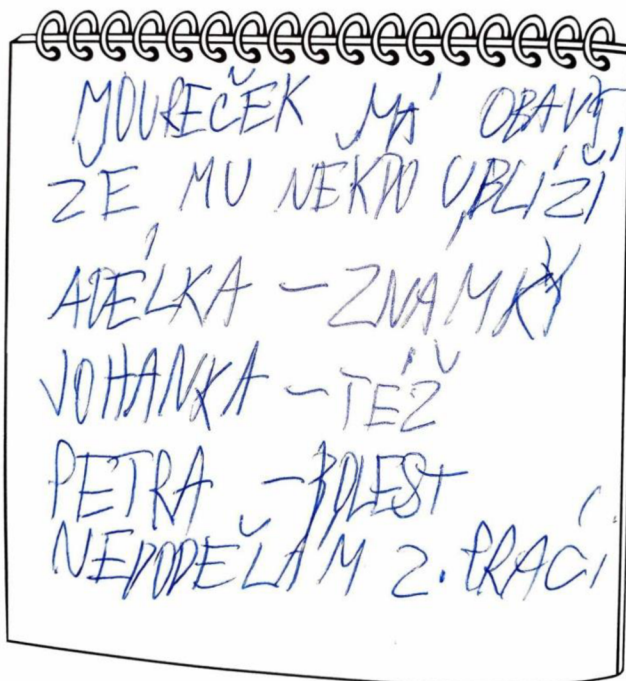 MOUREČEK MÁ OBAVY,
ŽE MU NĚKDO UBLÍŽÍ
ADÉLKA – ZNÁMKY
JOHANKA – TÉŽ
PETRA – BOLEST
NEDODĚLÁM 2. PRÁCI